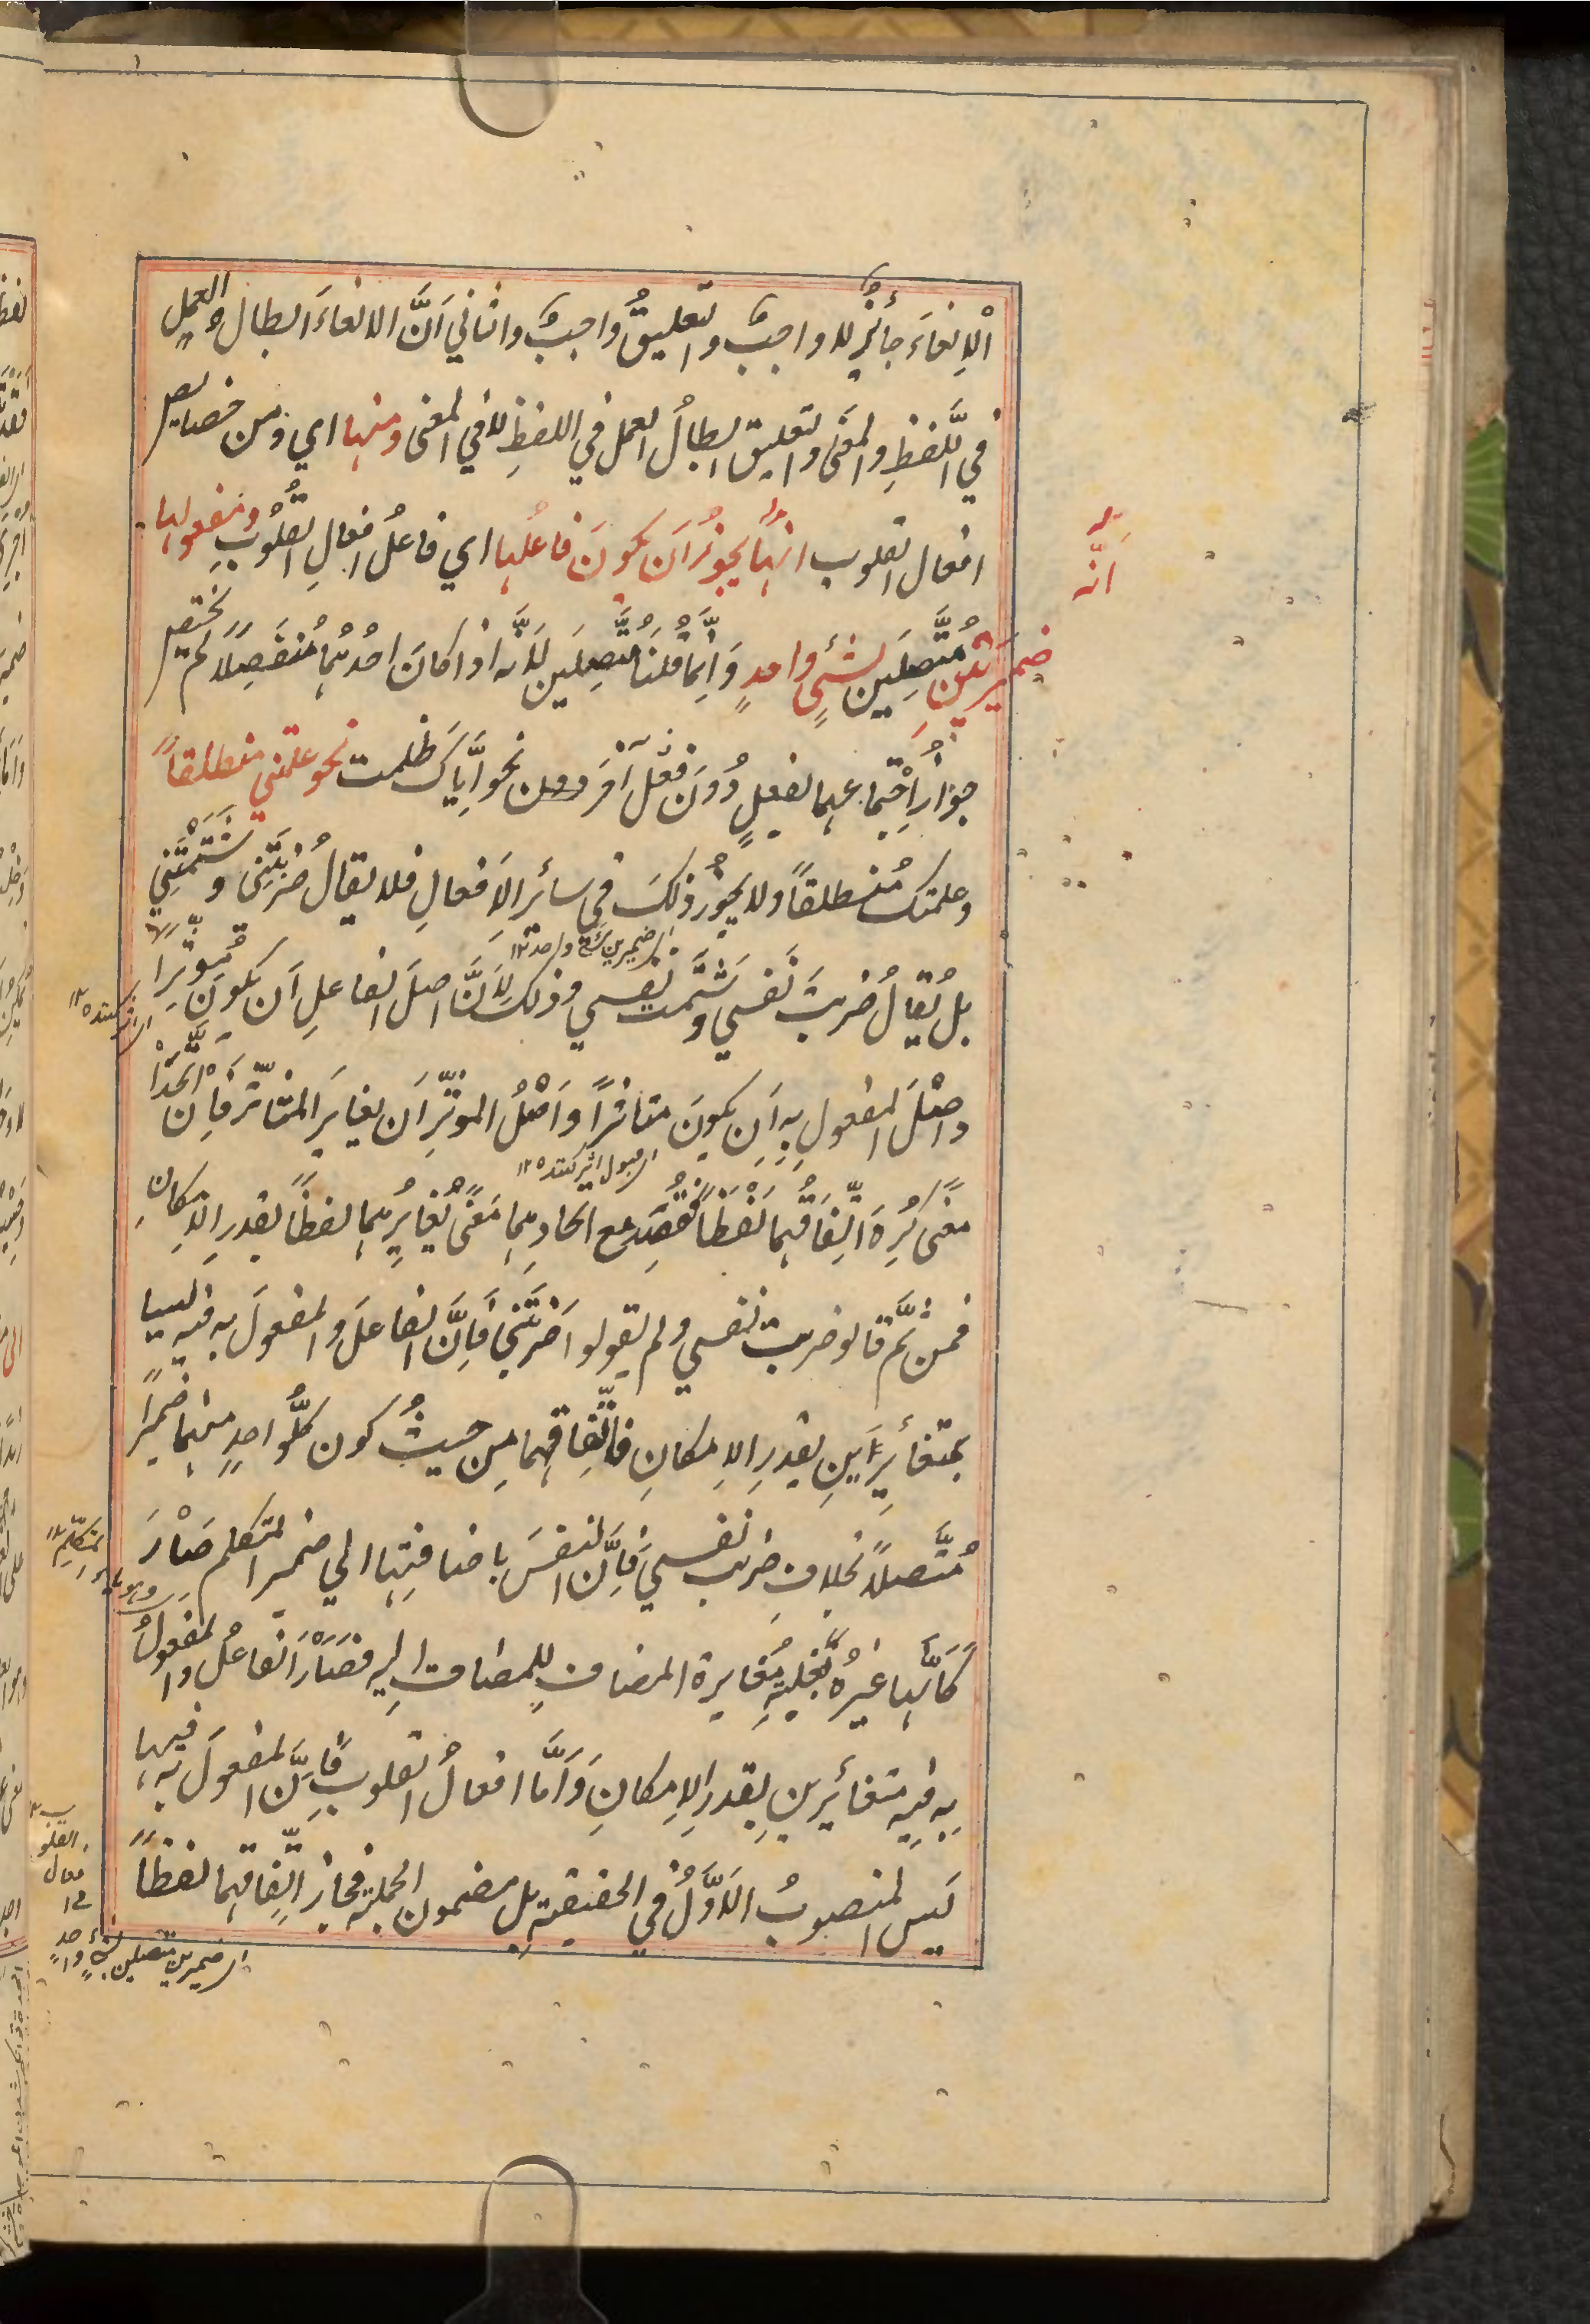 اْلاِلغاءَ جائزٌ لا واجبٌ والتعليقُ واجبٌ والثاني اَنَّ الالغاءَ ابطال العمل
في اللَّفظِ والمعنَى والتعليق ابطالُ العمل في اللفظِ لا في المعنى ومنها اي ومن خصايص
افعال القلوب انهَّا يجوزُ اَن يكونَ فاعلُها اي فاعلُ افعالِ القلُوبِ ومفعولها
انّه
ضميرَينِ مُتَّصِلَين لشئٍ واحدٍ وَاِنَّما قُلنَا مُتَّصِلَين لِاَنَّه اذا كانَ احدُهُما مُنفَصِلاً لَم يختصّ
جوازُ اِجْتِماعهما بفعلٍ دُونَ فعْلٍ آخَر نحو اِيَّاكَ ظلمت نحو علمتني منطلقاً
وعلمتك مُنطلقاً ولا يجُوزُ ذلكَ في سائر الاَفعالِ فلا يقالُ ضربتَنى وشَتَمْتَنِي
اى ضميرين لشئ واحد ١٢
بل يُقالُ ضربتَ نَفسي وشَتَمت نفسي وذلكَ لِاَنَّ اصلَ الفاعلِ اَن يكونَ مُؤثّراً
اى اثر كننده ١٢
واصْلَ المفعولِ بِهِ اَن يكونَ متاثراً واَصْلُ الموثِّرِ اَن يغايَر المتاثّر فاِن اتَّحَدَاْ
اى قبول اثر كننده ١٢
معنًى كُرِهَ اتِّفَاقُهما لَفْظَاً فقُصِدَ مع اتحادِهِما مَعْنًى تُغايُرِهُما لفظاً بقدرِ الاِمكانِ
فمن ثَمَّ قالو ضربت نفسي ولم يقولوا ضَربتَنِي فاِنَّ الفاعلَ والمفعولَ به فيه ليسا
بمتغائِرَينِ بقدرِ الاِمكانِ فاتِّفاقِهما مِن حيثُ كون كلُّ واحدٍ منهما ضميراً
مُتَّصلاً بخلافِ ضربت نفسي فاِنَّ النفسَ باضافتِها الي ضمير المتكلم صَاْرَ
وهو ياء المتكلِّم ١٢
كَاَنَّها غيرُهُ لِغَلبَةِ مُغايرة المضاف لِلمضاف اِليه فصَاَرَ الفاعلُ والمفعولُ
بِه فيه متغائرين بِقدر الاِمكانِ وَاَمَّا افعالُ القلوب فاِنَّ المفعولَ به فيها
لَيس المنصوبُ الاَوَّلُ في الحقيقة بل مضمون الجملة فجاز اتِّفاقهما لفظاً
اى ضميرين متصلين لشئٍ واحدٍ
في افعال القلوب ١٢